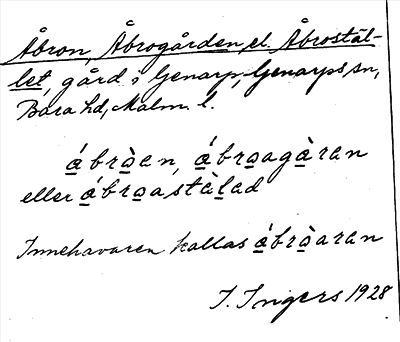 Åbron, Åbrogården el. Åbrostäl-
let, gård i Genarp, Genarps sn,
Bara hd, Malm. l.
á̲brò̲en, á̲bro̲agàran
eller á̲bro̲astà̲l̲ad
Innehavaren kallas á̲brò̲aran
I. Ingers 1928